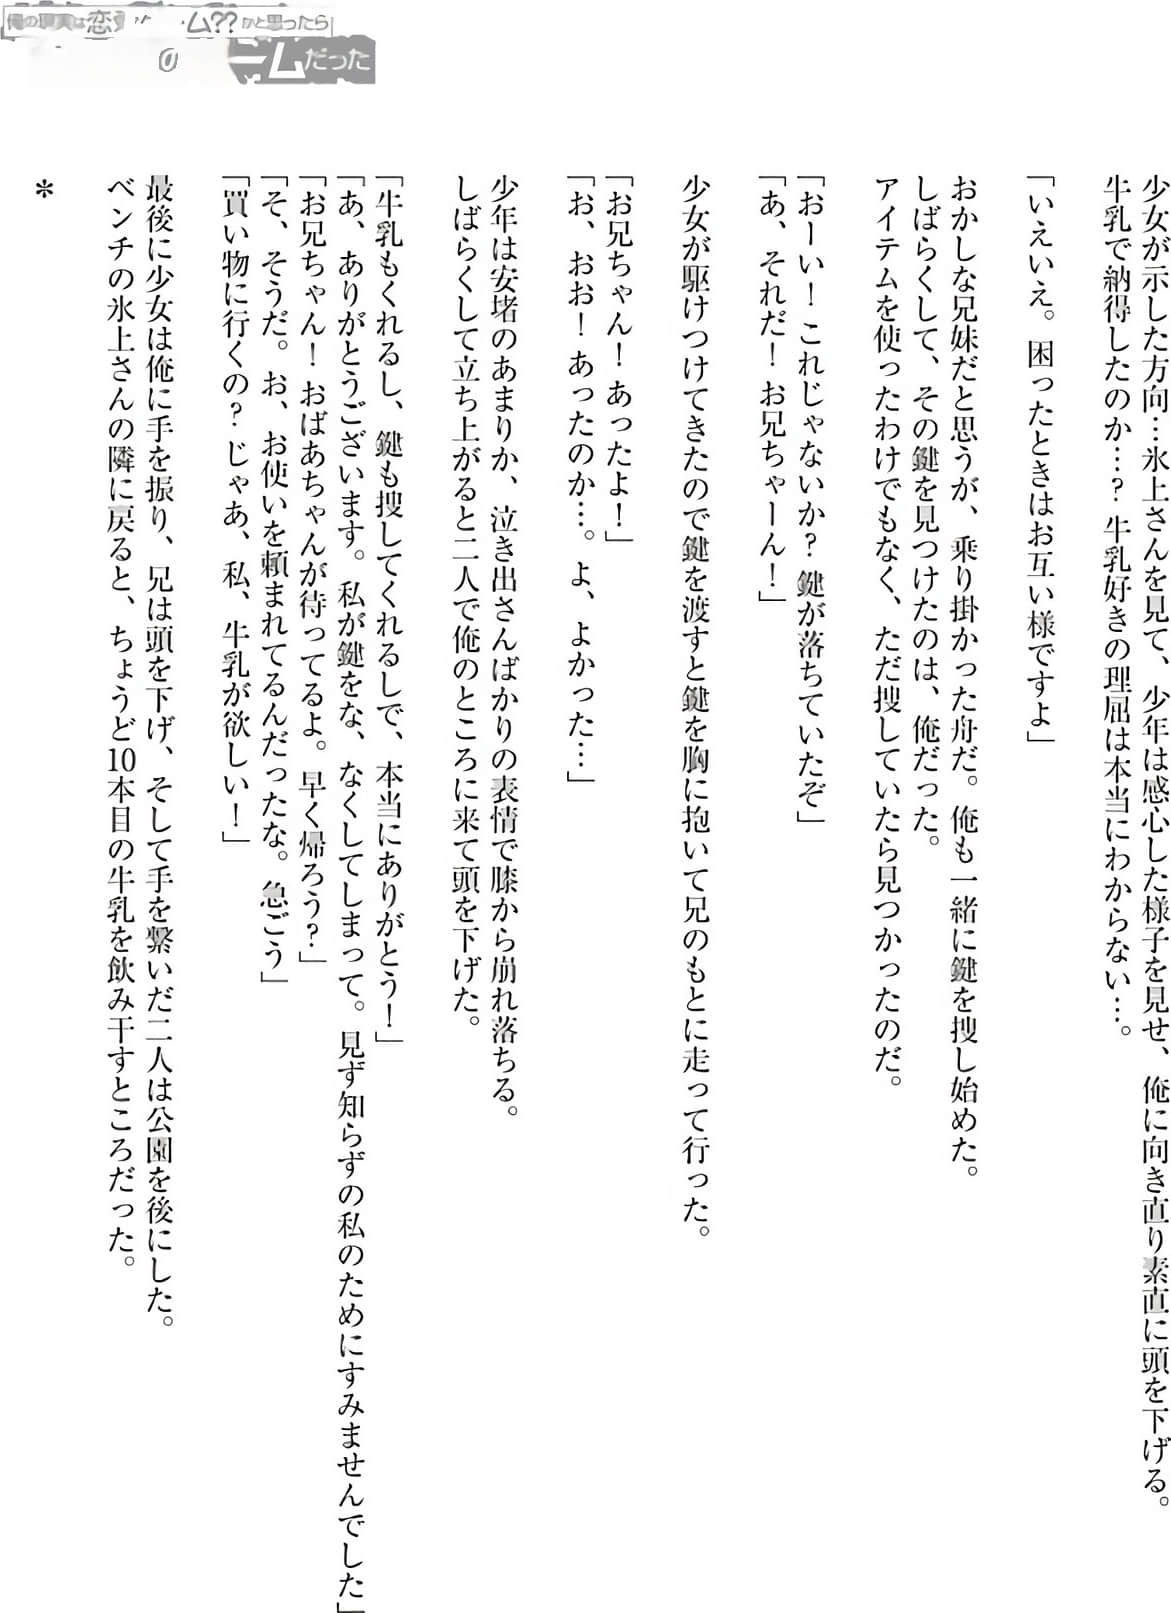 俺の現実は恋愛ゲーム??かと思ったら
のーームだった
少女が示した方向…氷上さんを見て、少年は感心した様子を見せ、俺に向き直り素直に頭を下げる。
牛乳で納得したのか…？ 牛乳好きの理屈は本当にわからない…。
「いえいえ。困ったときはお互い様ですよ」
おかしな兄妹だと思うが、乗り掛かった舟だ。俺も一緒に鍵を捜し始めた。
しばらくして、その鍵を見つけたのは、俺だった。
アイテムを使ったわけでもなく、ただ捜していたら見つかったのだ。
「おーい！これじゃないか？ 鍵が落ちていたぞ」
「あ、それだ！お兄ちゃーん！」
少女が駆けつけてきたので鍵を渡すと鍵を胸に抱いて兄のもとに走って行った。
「お兄ちゃん！あったよ！」
「お、おお！あったのか…。よ、よかった…」
少年は安堵のあまりか、泣き出さんばかりの表情で膝から崩れ落ちる。
しばらくして立ち上がると二人で俺のところに来て頭を下げた。
「牛乳もくれるし、鍵も捜してくれるしで、本当にありがとう！」
「あ、ありがとうございます。私が鍵をな、なくしてしまって。見ず知らずの私のためにすみませんでした」
「お兄ちゃん！おばあちゃんが待ってるよ。早く帰ろう？」
「そ、そうだ。お、お使いを頼まれてるんだったな。急ごう」
「買い物に行くの？じゃあ、私、牛乳が欲しい！」
最後に少女は俺に手を振り、兄は頭を下げ、そして手を繋いだ二人は公園を後にした。
ベンチの氷上さんの隣に戻ると、ちょうど10本目の牛乳を飲み干すところだった。
＊